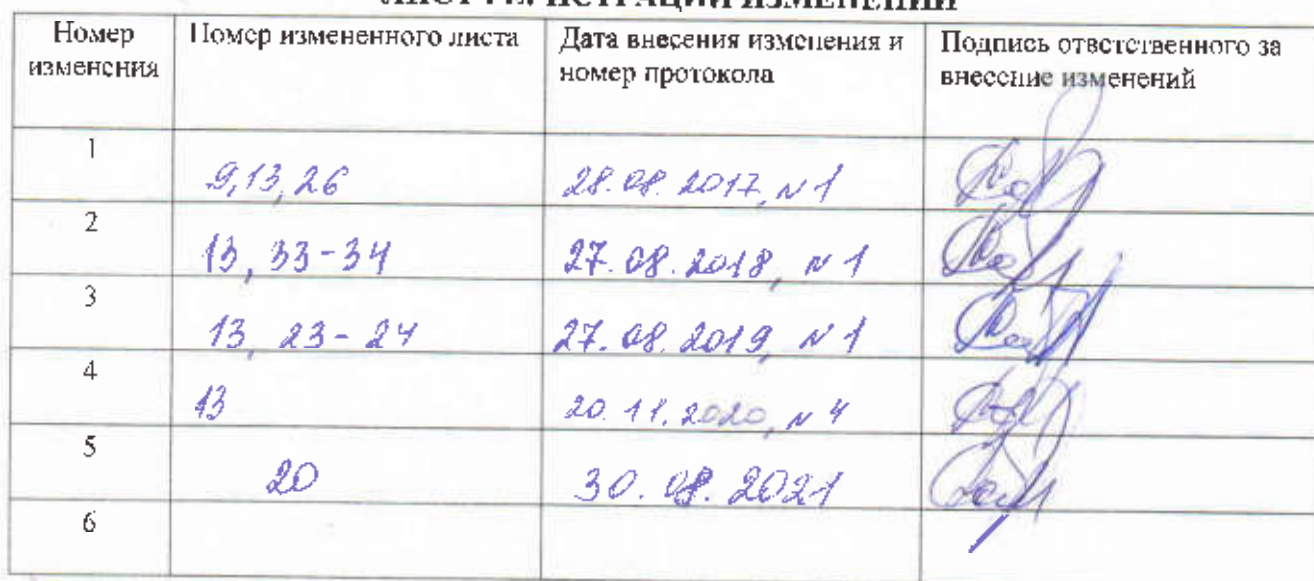 ЛИСТ РЕГИСТРАЦИИ ИЗМЕНЕНИЙ
Номер изменения
Номер измененного листа
Дата внесения изменения и номер протокола
Подпись ответственного за внесение изменений
1 9,13,26 28.08.2017, №1
2 13, 33-34 27.08.2018, №1
3 13, 23-24 27.08.2019, №1
4 13 20.11.2020, №4
5 20 30.08.2021
6